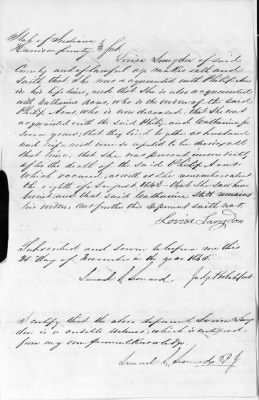 State of Indiana
Harrison County } Sct.
Lovisa Langdon of said
County and of lawful age maketh oath and
saith that She was acquainted with Philip Kns
in his life time, and that She is also acquainted
with Catharine who is the widow of the said
Philip who is now deceased, that She was
acquainted with the said Philip and Catharine for
Seven years; that they lived together as husband
and wife and were so reputed to be during all
that time; that She was present immediately
after the death of the said Philip
which occurred, as well as She remembers about
the eighth of August 1843 that She saw him
buried and that said Catharine Still remains
his widow. And further this Deponent saith not.
Lovisa Langdon
Subscribed and Sworn to before me this
28 day of November in the year 1845.
Samuel Judge Probate Court
I certify that the above deponent Lovisa Lang
don is a credible witness; which is certified
from my own personal knowledge.
Samuel